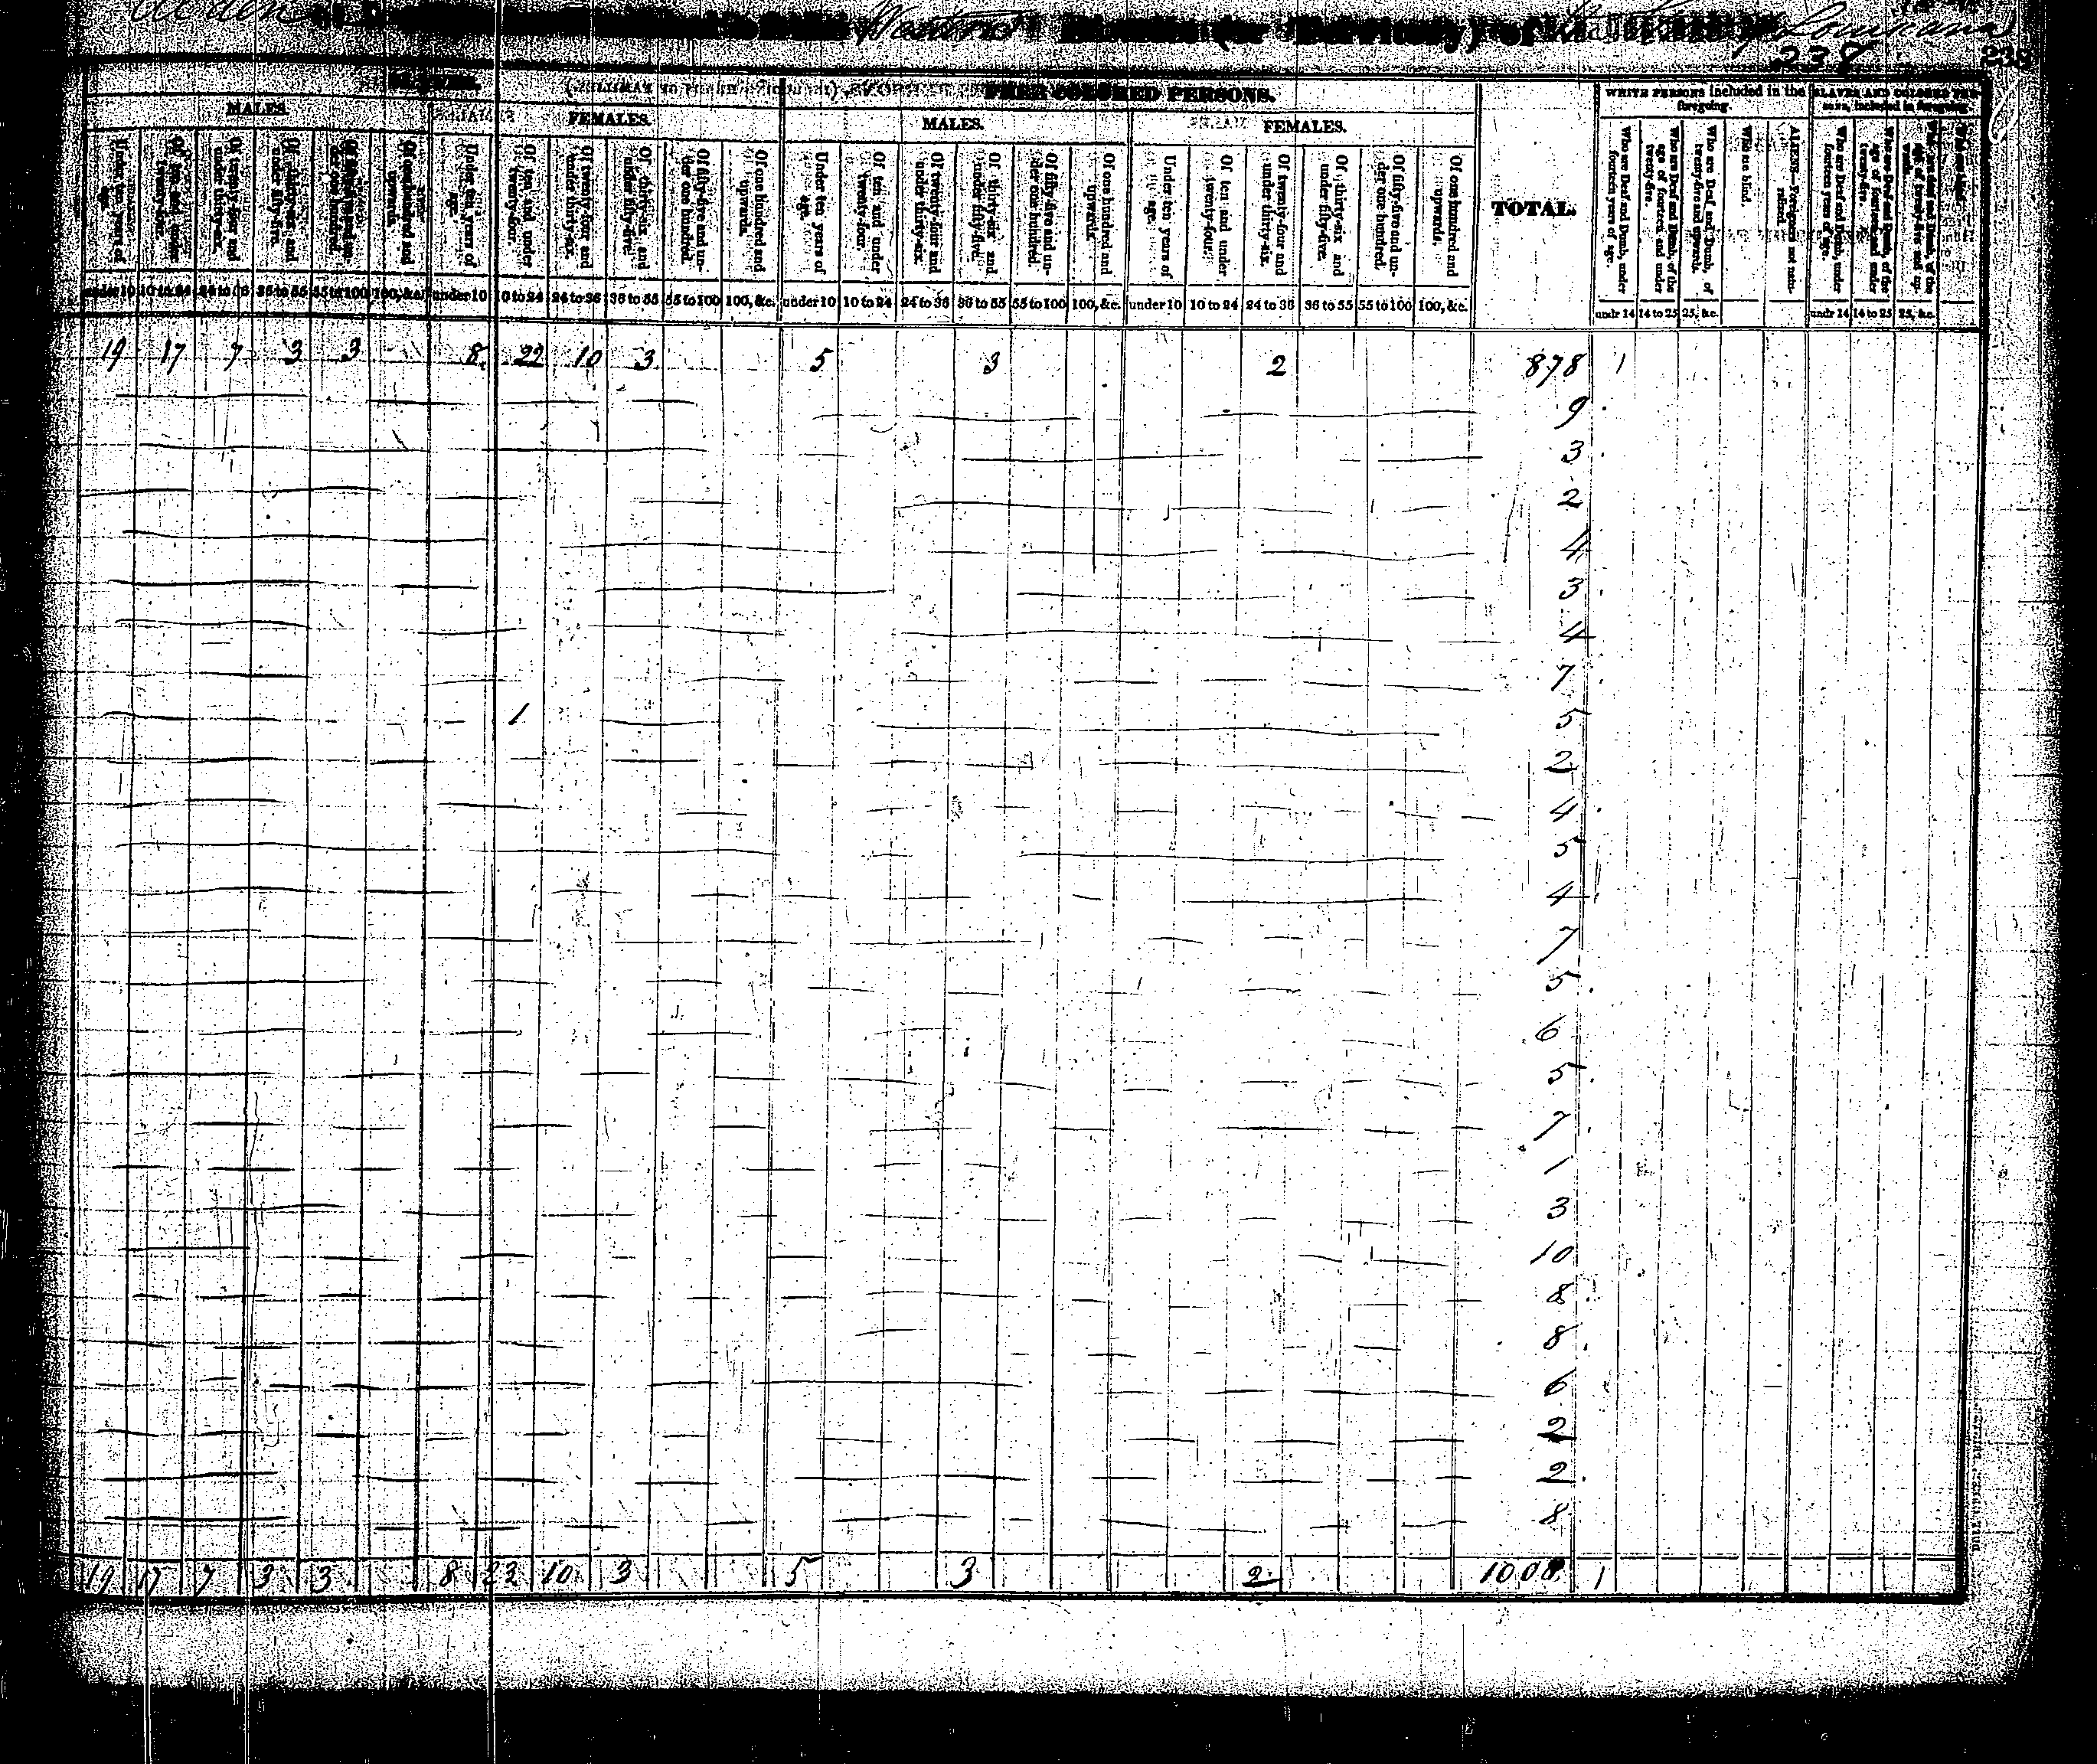 Western District (or Territory) of Louisiana
238
238
FREE COLORED PERSONS.
WHITE PERSONS included in the foregoing
SLAVES AND COLORED PERSONS, included in foregoing
MALES. FEMALES. MALES. FEMALES. TOTAL.
Under ten years of age. Of ten and under twenty-four. Of twenty-four and under thirty-six. Of thirty-six and under fifty-five. Of one hundred and upwards.
Under ten years of age. Of ten and under twenty-four. Of twenty-four and under thirty-six. Of thirty-six and under fifty-five. Of fifty-five and under one hundred. Of one hundred and upwards.
Under ten years of age. Of ten and under twenty-four. Of twenty-four and under thirty-six. Of thirty-six and under fifty-five. Of fifty-five and under one hundred. Of one hundred and upwards.
Under ten years of age. Of ten and under twenty-four. Of twenty-four and under thirty-six. Of thirty-six and under fifty-five. Of fifty-five and under one hundred. Of one hundred and upwards.
Who are Deaf and Dumb, under fourteen years of age. Who are Deaf and Dumb, of the age of fourteen and under twenty-five. Who are Deaf and Dumb, of twenty-five and upwards. Who are blind. ALIENS—Foreigners not naturalized.
Who are Deaf and Dumb, under fourteen years of age. Who are Deaf and Dumb, of the age of fourteen and under twenty-five.
under 10 10 to 24 24 to 36 36 to 55 55 to 100 100, &c. under 10 10 to 24 24 to 36 36 to 55 55 to 100 100, &c. under 10 10 to 24 24 to 36 36 to 55 55 to 100 100, &c. under 10 10 to 24 24 to 36 36 to 55 55 to 100 100, &c. undr 14 14 to 25 25, &c. undr 14 14 to 25 25, &c.
19 17 7 3 3 8 22 10 3 5 3 2 878 1
9
3
2
4
3
4
7
1 5
2
4
5
4
7
5
6
5
7
1
3
10
8
8
6
2
2
8
19 17 7 3 3 8 23 10 3 5 3 2 1008 1